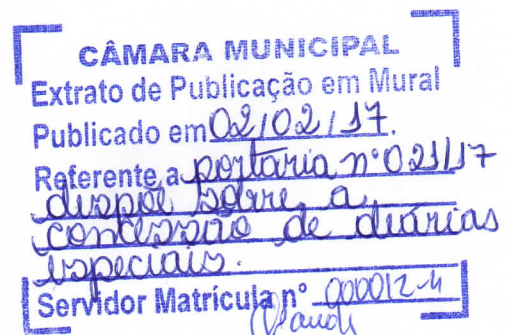 CÂMARA MUNICIPAL
Extrato de Publicação em Mural
Publicado em 02/02/17.
Referente a portaria nº 021/17
dispõe sobre a
concessão de diárias
especiais.
Servidor Matrícula nº 000012-4